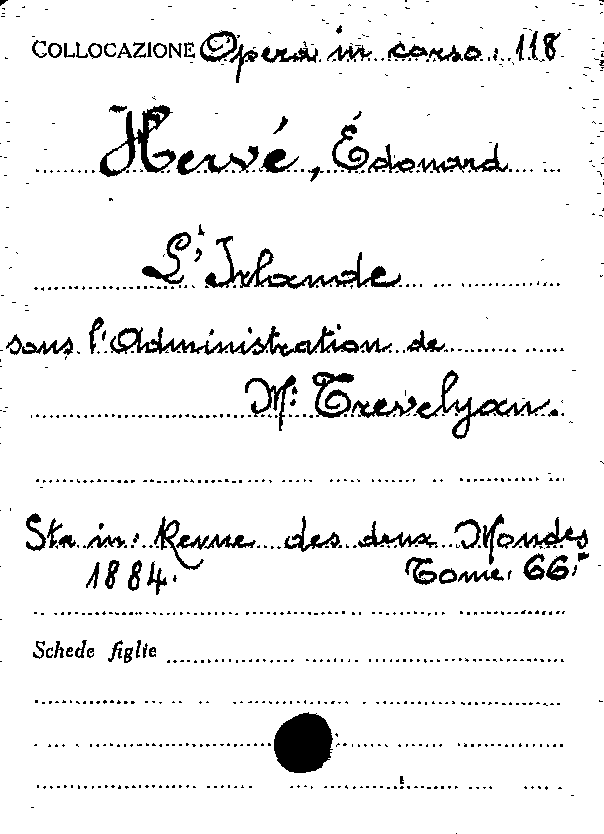 COLLOCAZIONE Opera in corso. 118
Hervé, Édouard
L'Irlande
sous l'Administration de
Mr. Trevelyan.
Sta in: Revue des deux Mondes
1884. Tome. 66.º
Schede figlie